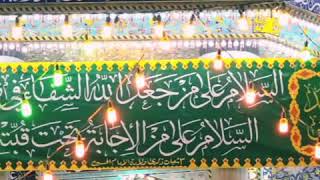 السلام على من جعل الله الشفاء في
السلام على من الإجابة تحت قبته